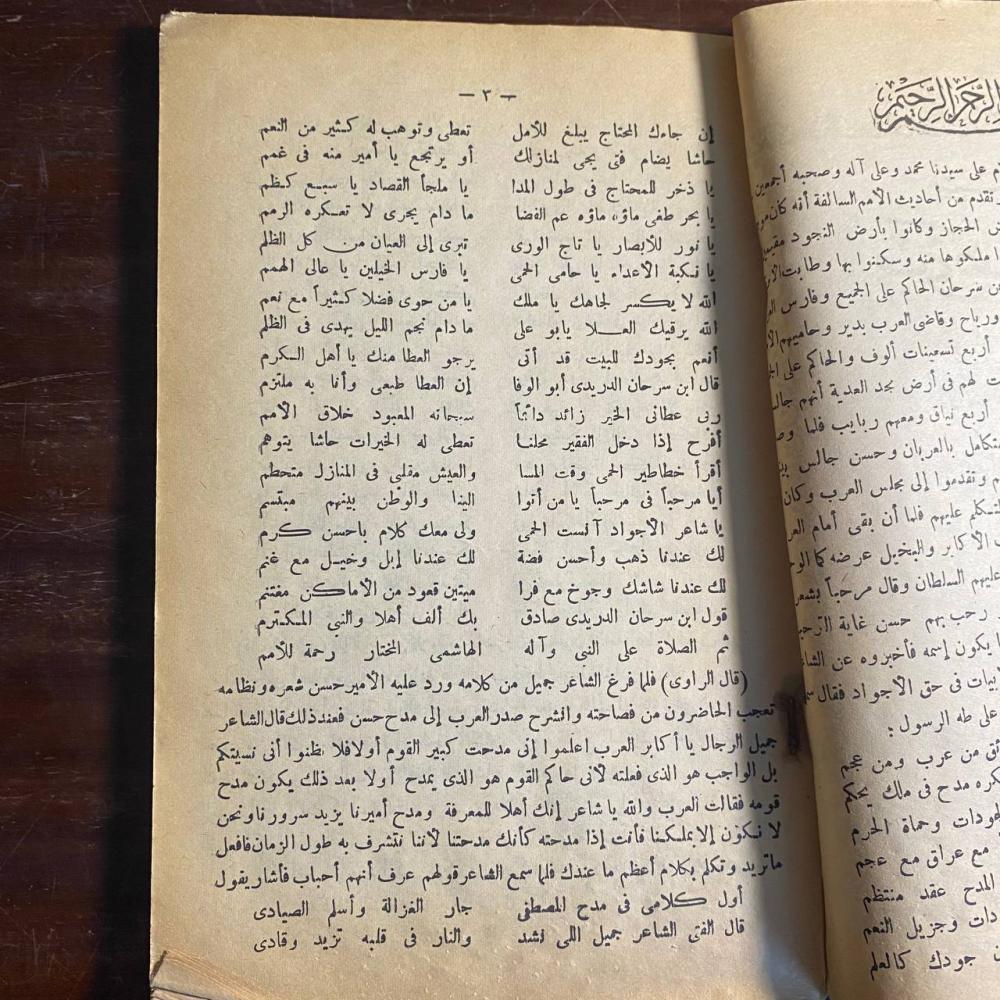 الرحمن الرحيم
م على سيدنا محمد وعلى آله وصحبه أجمعين
تقدم من أحاديث الأمم السالفة أنه كان
ض الحجاز وكانوا بأرض النجود
ملكوها منه وسكنوا بها وطابت
ن سرحان الحاكم على الجميع وفارس
ورياح وقاضى العرب بدير وحاميهم
أربع تسعينات ألوف والحاكم على
ت لهم فى أرض نجد العدية أنهم
أربع نياق ومعهم ربايب فلما
تكامل بالعربان وحسن جالس
م وتقدموا إلى مجلس العرب وكان
تكلم عليهم فلما أن بقى أمام
الأكابر والبخيل عرضه كما
عليهم السلطان وقال مرحباً
رحب بهم حسن غاية
يكون إسمه فأخبروه عن
بيات فى حق الأجواد فقال
على طه الرسول :
ق من عرب ومن عجم
كره مدح فى ملك يحكم
جودات وحماة الحرم
مع عراق مع عجم
المدح عقد منتظم
دات وجزيل النعم
جودك كالعلم
— ٣ —
إن جاءك المحتاج يبلغ للأمل تعطى وتوهب له كثير من النعم
حاشا يضام فتى يجى لمنازلك أو يرتجع يا أمير منه فى غمم
يا ذخر للمحتاج فى طول المدا يا ملجأ القصاد يا سبع كظم
يا بحر طفى ماؤه ماؤه عم الفضا ما دام يجرى لا تعكره الرمم
يا نور للأبصار يا تاج الورى تبرى إلى العيان من كل الظلم
يا نكبة الأعداء يا حامى الحمى يا فارس الخيلين يا عالى الهمم
الله لا يكسر لجاهك يا ملك يا من حوى فضلا كثيراً مع نعم
الله يرقيك العلا يابو على مادام نجم الليل يهدى فى الظلم
أنعم بجودك للبيت قد أتى يرجو العطا منك يا أهل الكرم
قال ابن سرحان الدريدى أبو الوفا إن العطا طبعى وأنا به ملتزم
ربى عطانى الخير زائد دائماً سبحانه المعبود خلاق الأمم
أفرح إذا دخل الفقير محلنا تعطى له الخيرات حاشا يتوهم
أقرأ خطاطير الحمى وقت المسا والعيش مقلبى فى المنازل متحطم
أيا مرحباً فى مرحباً يا من أتوا البنا والوطن بينهم مبتسم
يا شاعر الأجواد آنست الحمى ولى معك كلام باحسن كرم
لك عندنا ذهب وأحسن فضة لك عندنا إبل وخيل مع غنم
لك عندنا شاشك وجوخ مع فرا ميتين قعود من الأماكن مغتنم
قول ابن سرحان الدريدى صادق بك ألف أهلا والنبي المكترم
ثم الصلاة على النبي وآله الهاشمى المختار رحمة للأمم
(قال الراوى) فلما فرغ الشاعر جميل من كلامه ورد عليه الأمير حسن شعره ونظامه
تعجب الحاضرون من فصاحته وانشرح صدر العرب إلى مدح حسن فعند ذلك قال الشاعر
جميل الرجال يا أكابر العرب اعلموا إنى مدحت كبير القوم أولا فلا تظنوا أنى نسيتكم
بل الواجب هو الذى فعلته لأنى حاكم القوم هو الذى يمدح أولا بعد ذلك يكون مدح
قومه فقالت العرب والله يا شاعر إنك أهلا للمعرفة ومدح أميرنا يزيد سرورنا ونحن
لا نكون إلا بملكنا فأنت إذا مدحته كأنك مدحتنا لأننا نتشرف به طول الزمان فافعل
ماتريد وتكلم بكلام أعظم ما عندك فلما سمع الشاعر قولهم عرف أنهم أحباب فأشار يقول
أول كلامى فى مدح المصطفى جار الغزالة وأسلم الصيادى
قال الفتى الشاعر جميل اللى نشد والنار فى قلبه تزيد وقادى